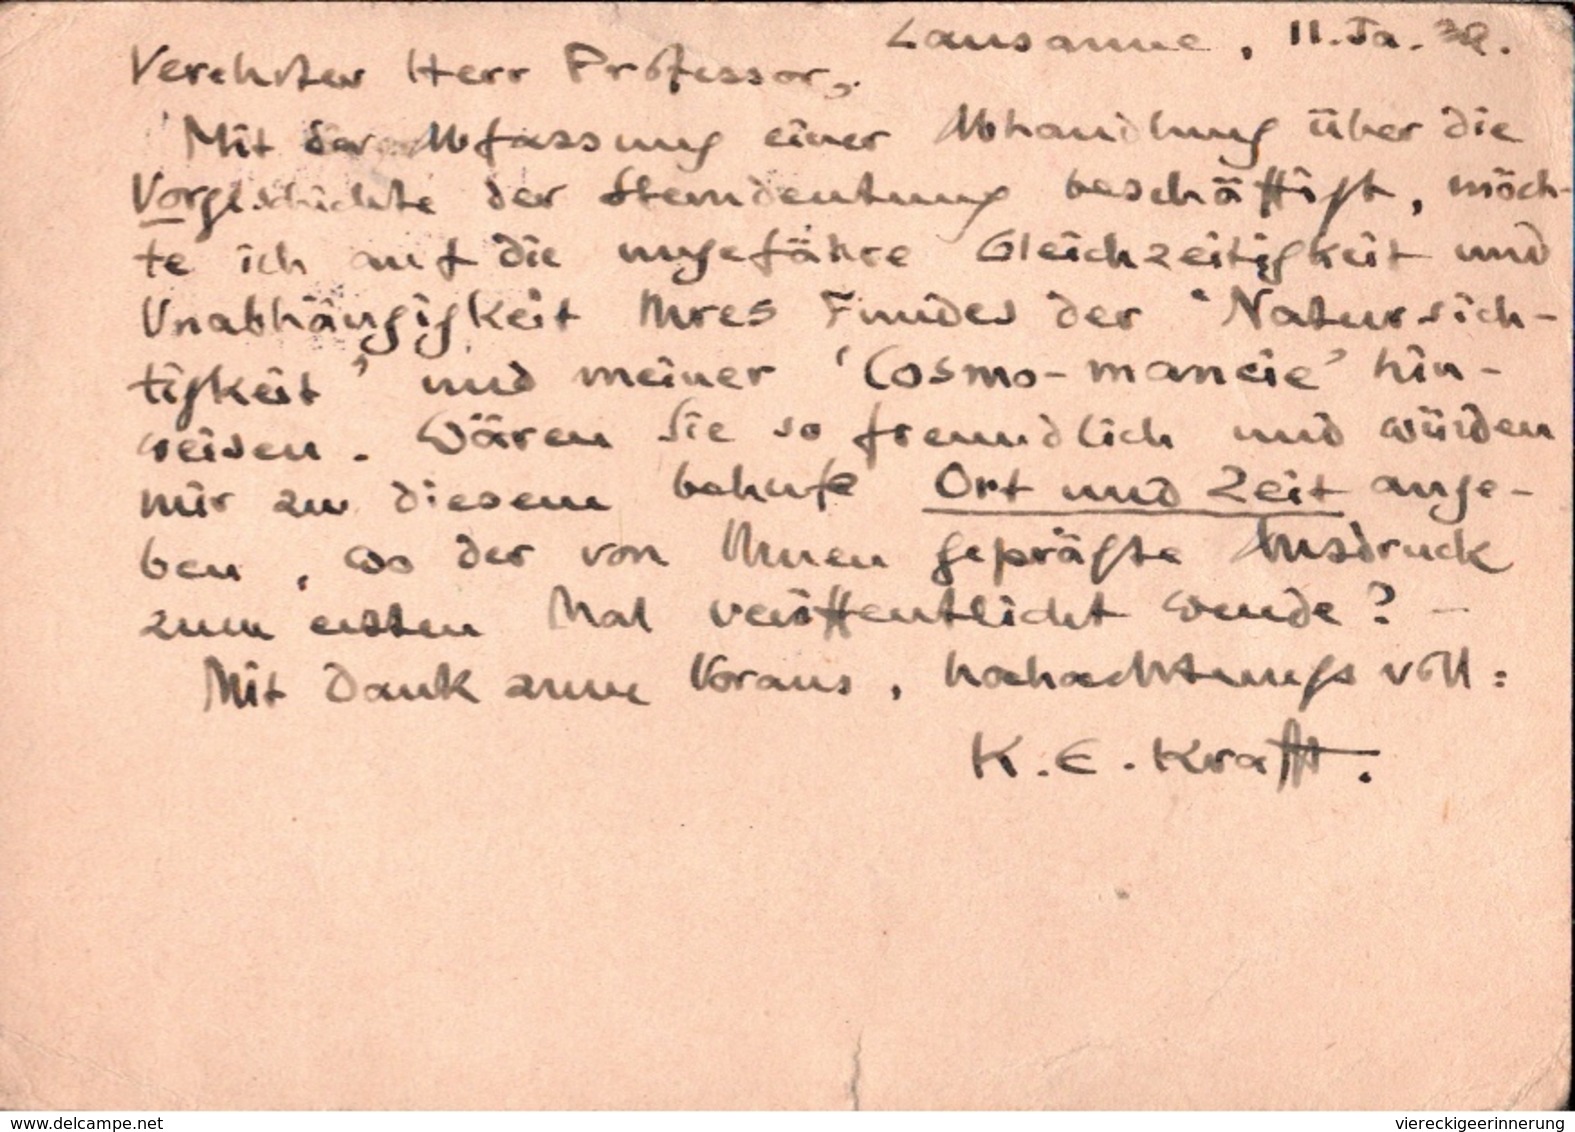 Lausanne, 11. Ja. 32.
Verehrter Herr Professor,
Mit der Abfassung einer Abhandlung über die
Vorgeschichte der Sterndeutung beschäftigt, möch-
te ich auf die ungefähre Gleichzeitigkeit und
Unabhängigkeit Ihres Fundes der 'Natursich-
tigkeit' und meiner 'Cosmo-mancie' hin-
weisen. Wären Sie so freundlich und würden
mir zu diesem behufe Ort und Zeit ange-
ben, wo der von Ihnen geprägte Ausdruck
zum ersten Mal veröffentlicht wurde? –
Mit Dank zum Voraus, hochachtungsvoll:
K. E. Krafft.
www.delcampe.net
viereckigeerinnerung